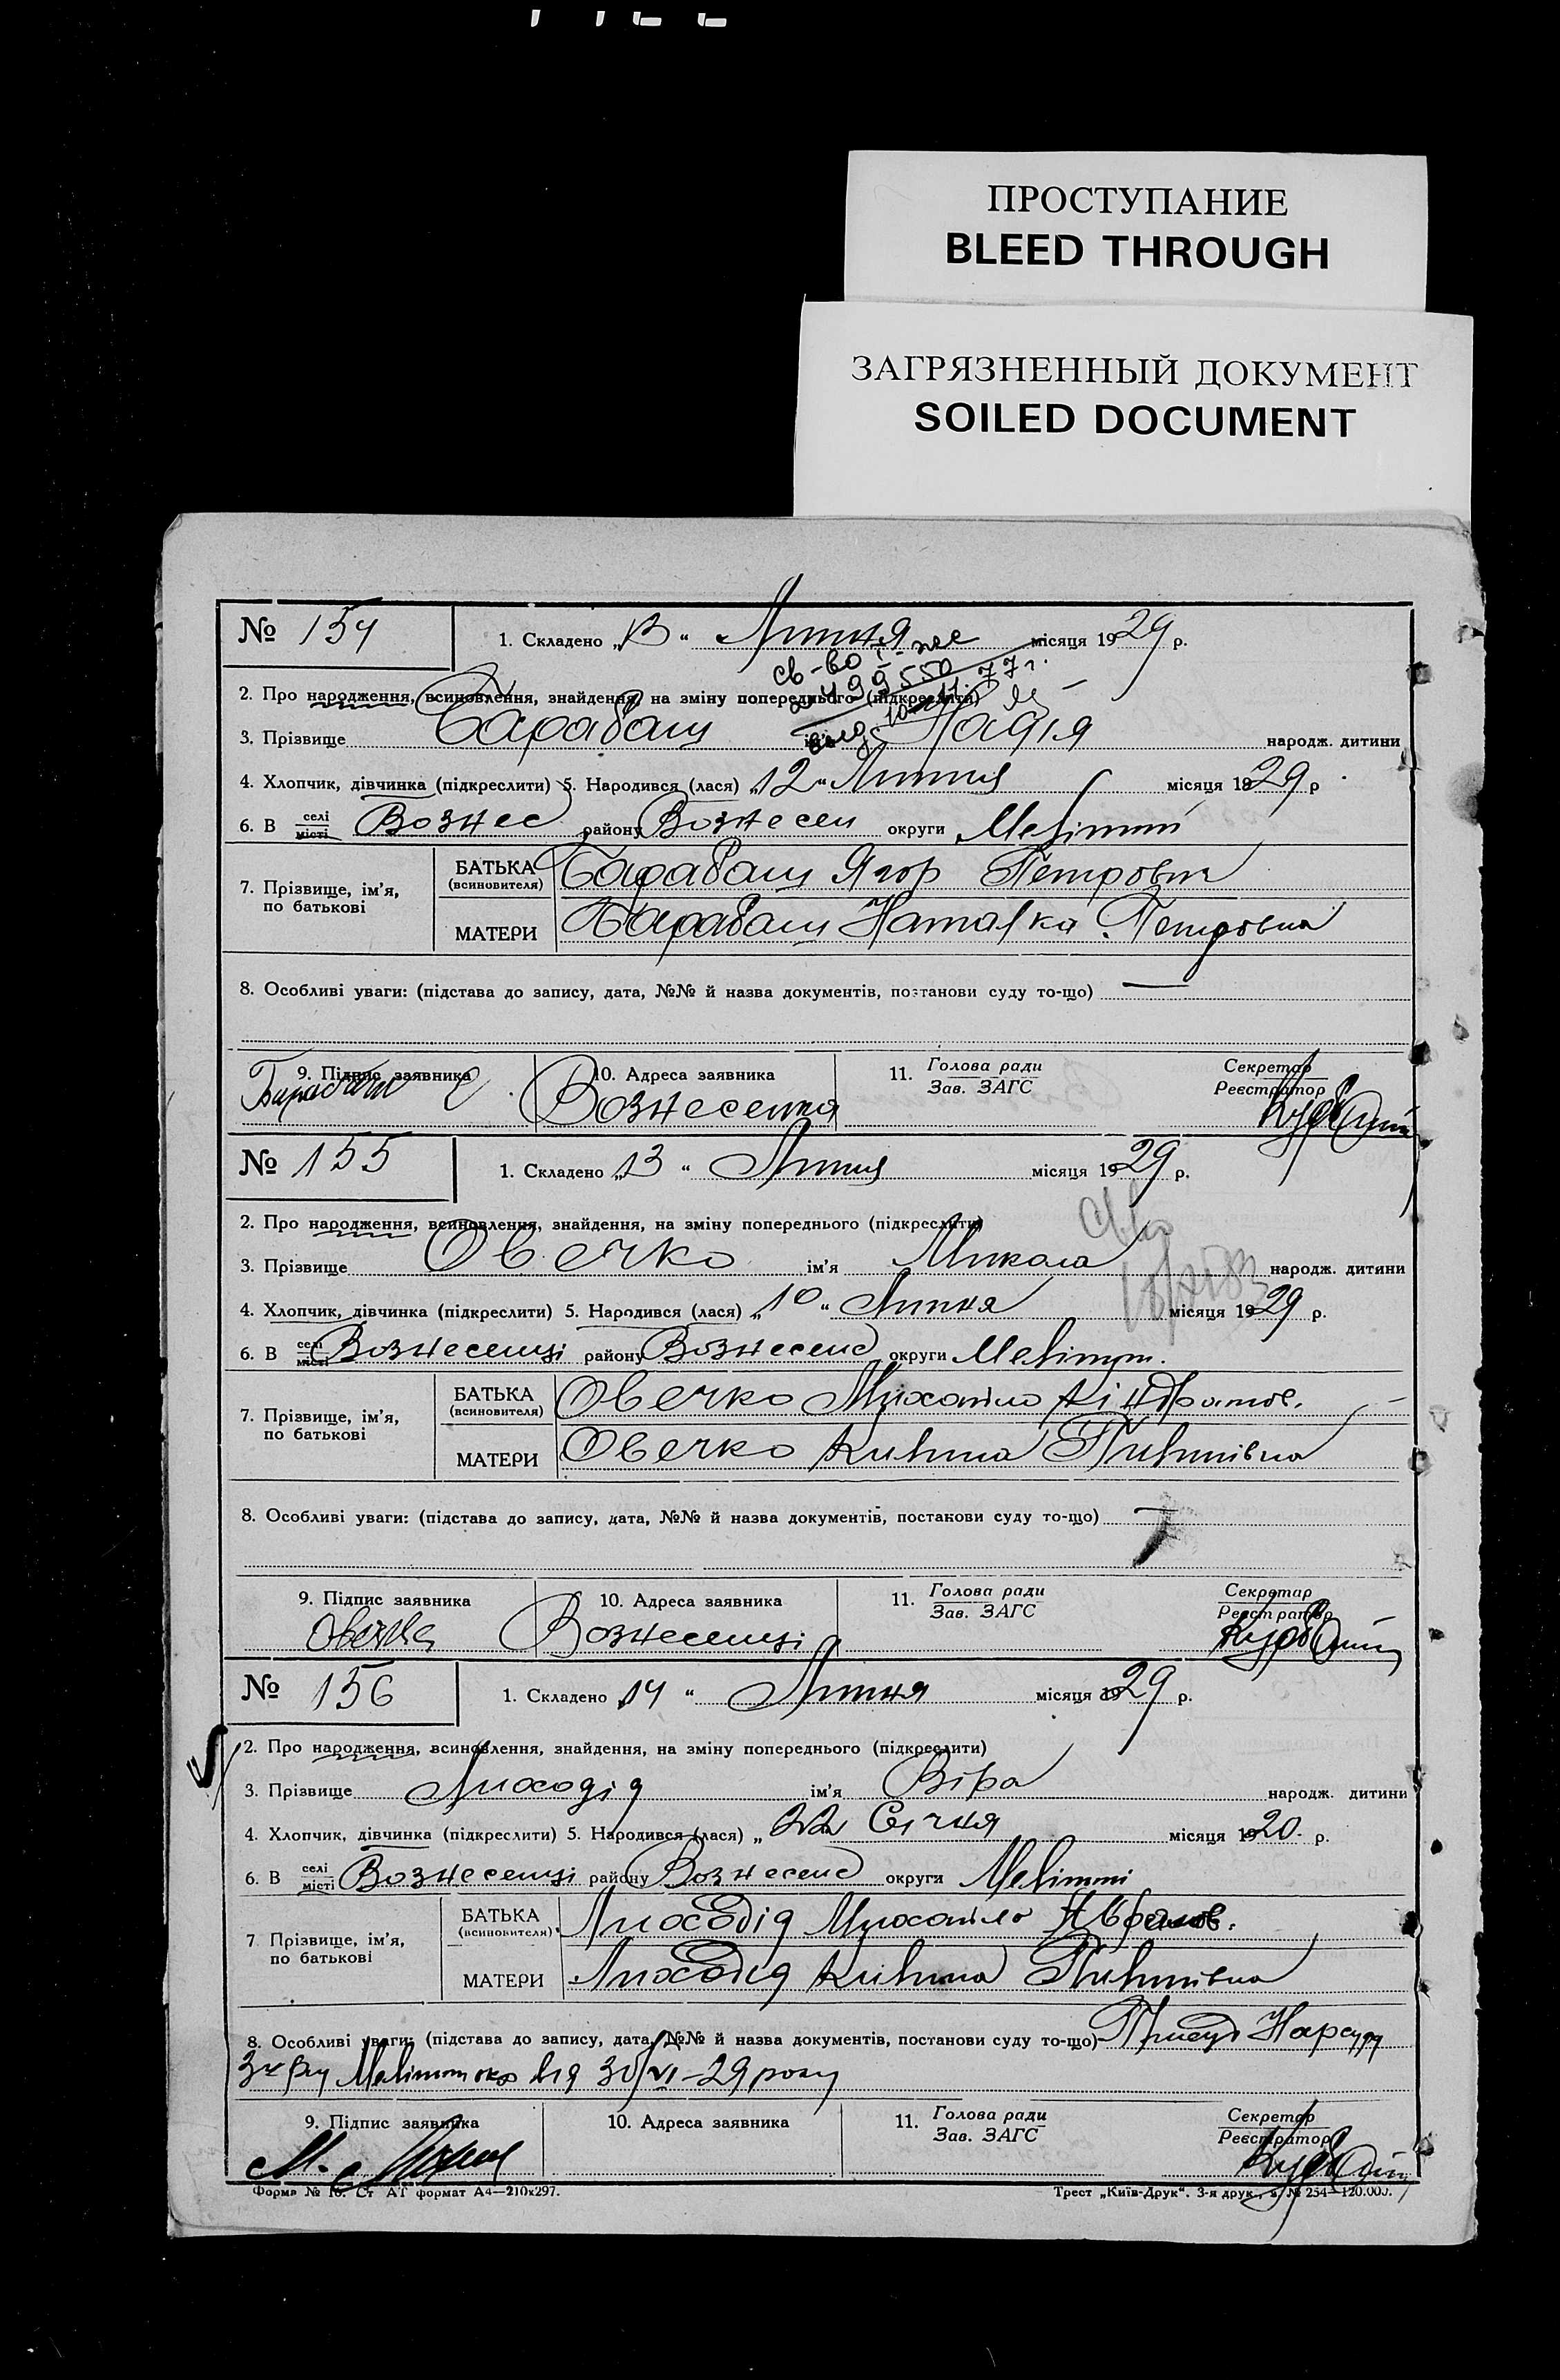 ПРОСТУПАНИЕ
BLEED THROUGH
ЗАГРЯЗНЕННЫЙ ДОКУМЕНТ
SOILED DOCUMENT
№ 154 1. Складено „13“ Липня місяця 1929 р.
св-во I-
99550
10.11.77 г.
2. Про народження, всиновлення, знайдення, на зміну попереднього (підкреслити)
3. Прізвище Барабаш ім'я Надія народж. дитини
4. Хлопчик, дівчинка (підкреслити) 5. Народився (лася) „12“ Липня місяця 1929 р
6. В селі місті Вознес району Вознесен округи Меліттт
7. Прізвище, ім'я, по батькові
БАТЬКА (всиновителя) Барабаш Ягор Петрович
МАТЕРИ Барабаш Наталка Петровна
8. Особливі уваги: (підстава до запису, дата, №№ й назва документів, постанови суду то-що) —
9. Підпис заявника 10. Адреса заявника 11. Голова ради Зав. ЗАГС Секретар Реєстратор
Барабаш Вознесенка
№ 155 1. Складено „13“ Липня місяця 1929 р.
2. Про народження, всиновлення, знайдення, на зміну попереднього (підкреслити)
3. Прізвище Овечко ім'я Микола народж. дитини
4. Хлопчик, дівчинка (підкреслити) 5. Народився (лася) „10“ Липня місяця 1929 р.
6. В селі місті Вознесенці району Вознесенс округи Мелітт.
7. Прізвище, ім'я, по батькові
БАТЬКА (всиновителя) Овечко Михайло Кіндратов.
МАТЕРИ Овечко Килина Пилипівна
8. Особливі уваги: (підстава до запису, дата, №№ й назва документів, постанови суду то-що)
9. Підпис заявника 10. Адреса заявника 11. Голова ради Зав. ЗАГС Секретар Реєстратор
Овечка Вознесенці
№ 156 1. Складено „14“ Липня місяця 1929 р.
2. Про народження, всиновлення, знайдення, на зміну попереднього (підкреслити)
3. Прізвище Лиходід ім'я Віра народж. дитини
4. Хлопчик, дівчинка (підкреслити) 5. Народився (лася) „22“ Січня місяця 1920 р.
6. В селі місті Вознесенці району Вознесенс округи Меліттт
7 Прізвище, ім'я, по батькові
БАТЬКА (всиновителя) Лиходід Михайло
МАТЕРИ Лиходід Килина Пилипівна
8. Особливі уваги: (підстава до запису, дата, №№ й назва документів, постанови суду то-що) Присуд Нарсуду
від 30/VI-29 року
9. Підпис заявника 10. Адреса заявника 11. Голова ради Зав. ЗАГС Секретар Реєстратор
Форма № 16. Ст АТ формат А4—210х297. Трест „Київ-Друк“. 3-я друк., з. № 254—120.000.